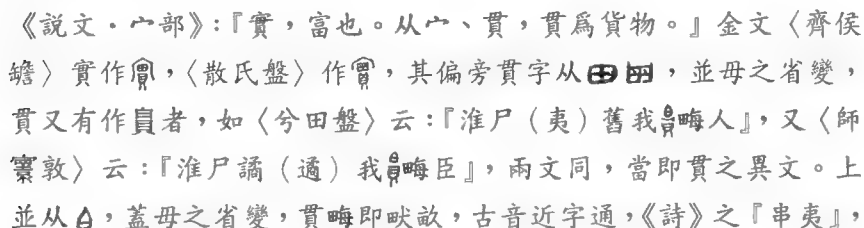 《說文・宀部》：『實，富也。从宀、貫，貫爲貨物。』金文〈齊侯
罎〉實作，〈散氏盤〉作，其偏旁貫字从，並毋之省變，
貫又有作者，如〈兮田盤〉云：『淮尸（夷）舊我畮人』，又〈師
寰敦〉云：『淮尸譎（遹）我畮臣』，兩文同，當即貫之異文。上
並从，蓋毋之省變，貫畮即畎畝，古音近字通，《詩》之『串夷』，